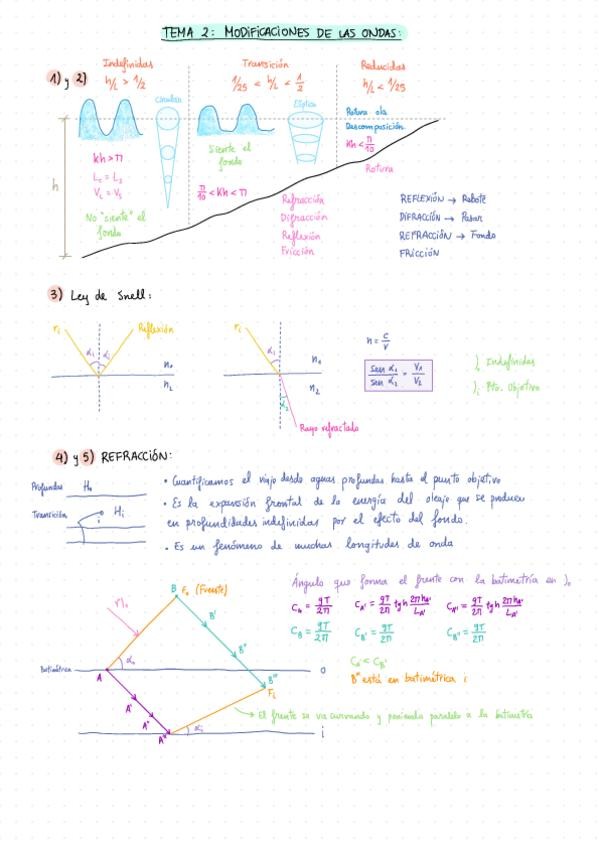 TEMA 2: MODIFICACIONES DE LAS ONDAS:
1) y 2)
Indefinidas
h/L > 1/2
Transición
1/25 < h/L < 1/2
Reducidas
h/L < 1/25
Circular
Elíptica
Rotura ola
Descomposición
Kh < π/10
Rotura
h
Kh > π
Siente el
fondo
π/10 < Kh < π
No "siente" el
fondo
Refracción
Difracción
Reflexión
Fricción
REFLEXIÓN → Rebote
DIFRACCIÓN →
REFRACCIÓN → Fondo
FRICCIÓN
3) Ley de Snell:
ri
Reflexión
αi αi
n1
n2
ri
αi
n1
n2
α2
Rayo refractado
n = c/v
sen α1 / sen α2 = V1 / V2
)o Indefinidas
)i Pto. Objetivo
4) y 5) REFRACCIÓN:
Profundas Ho
Transición Hi
i
• Cuantificamos el viaje desde aguas profundas hasta el punto objetivo
• Es la expansión frontal de la energía del oleaje que se produce
en profundidades indefinidas por el efecto del fondo.
• Es un fenómeno de muchas longitudes de onda
Ángulo que forma el frente con la batimetría en )o
CA = gT/2π CA' = gT/2π tgh 2πhA'/LA' CA'' = gT/2π tgh 2πhA''/LA''
CB = gT/2π CB' = gT/2π CB'' = gT/2π
CA' < CB'
B''' está en batimétrica i
B Fo (Fuente)
B'
B''
B'''
Fi
αo
Batimétrica
o
A
A'
A''
A'''
αi
i
El frente se va curvando y poniendo paralelo a la batimetría